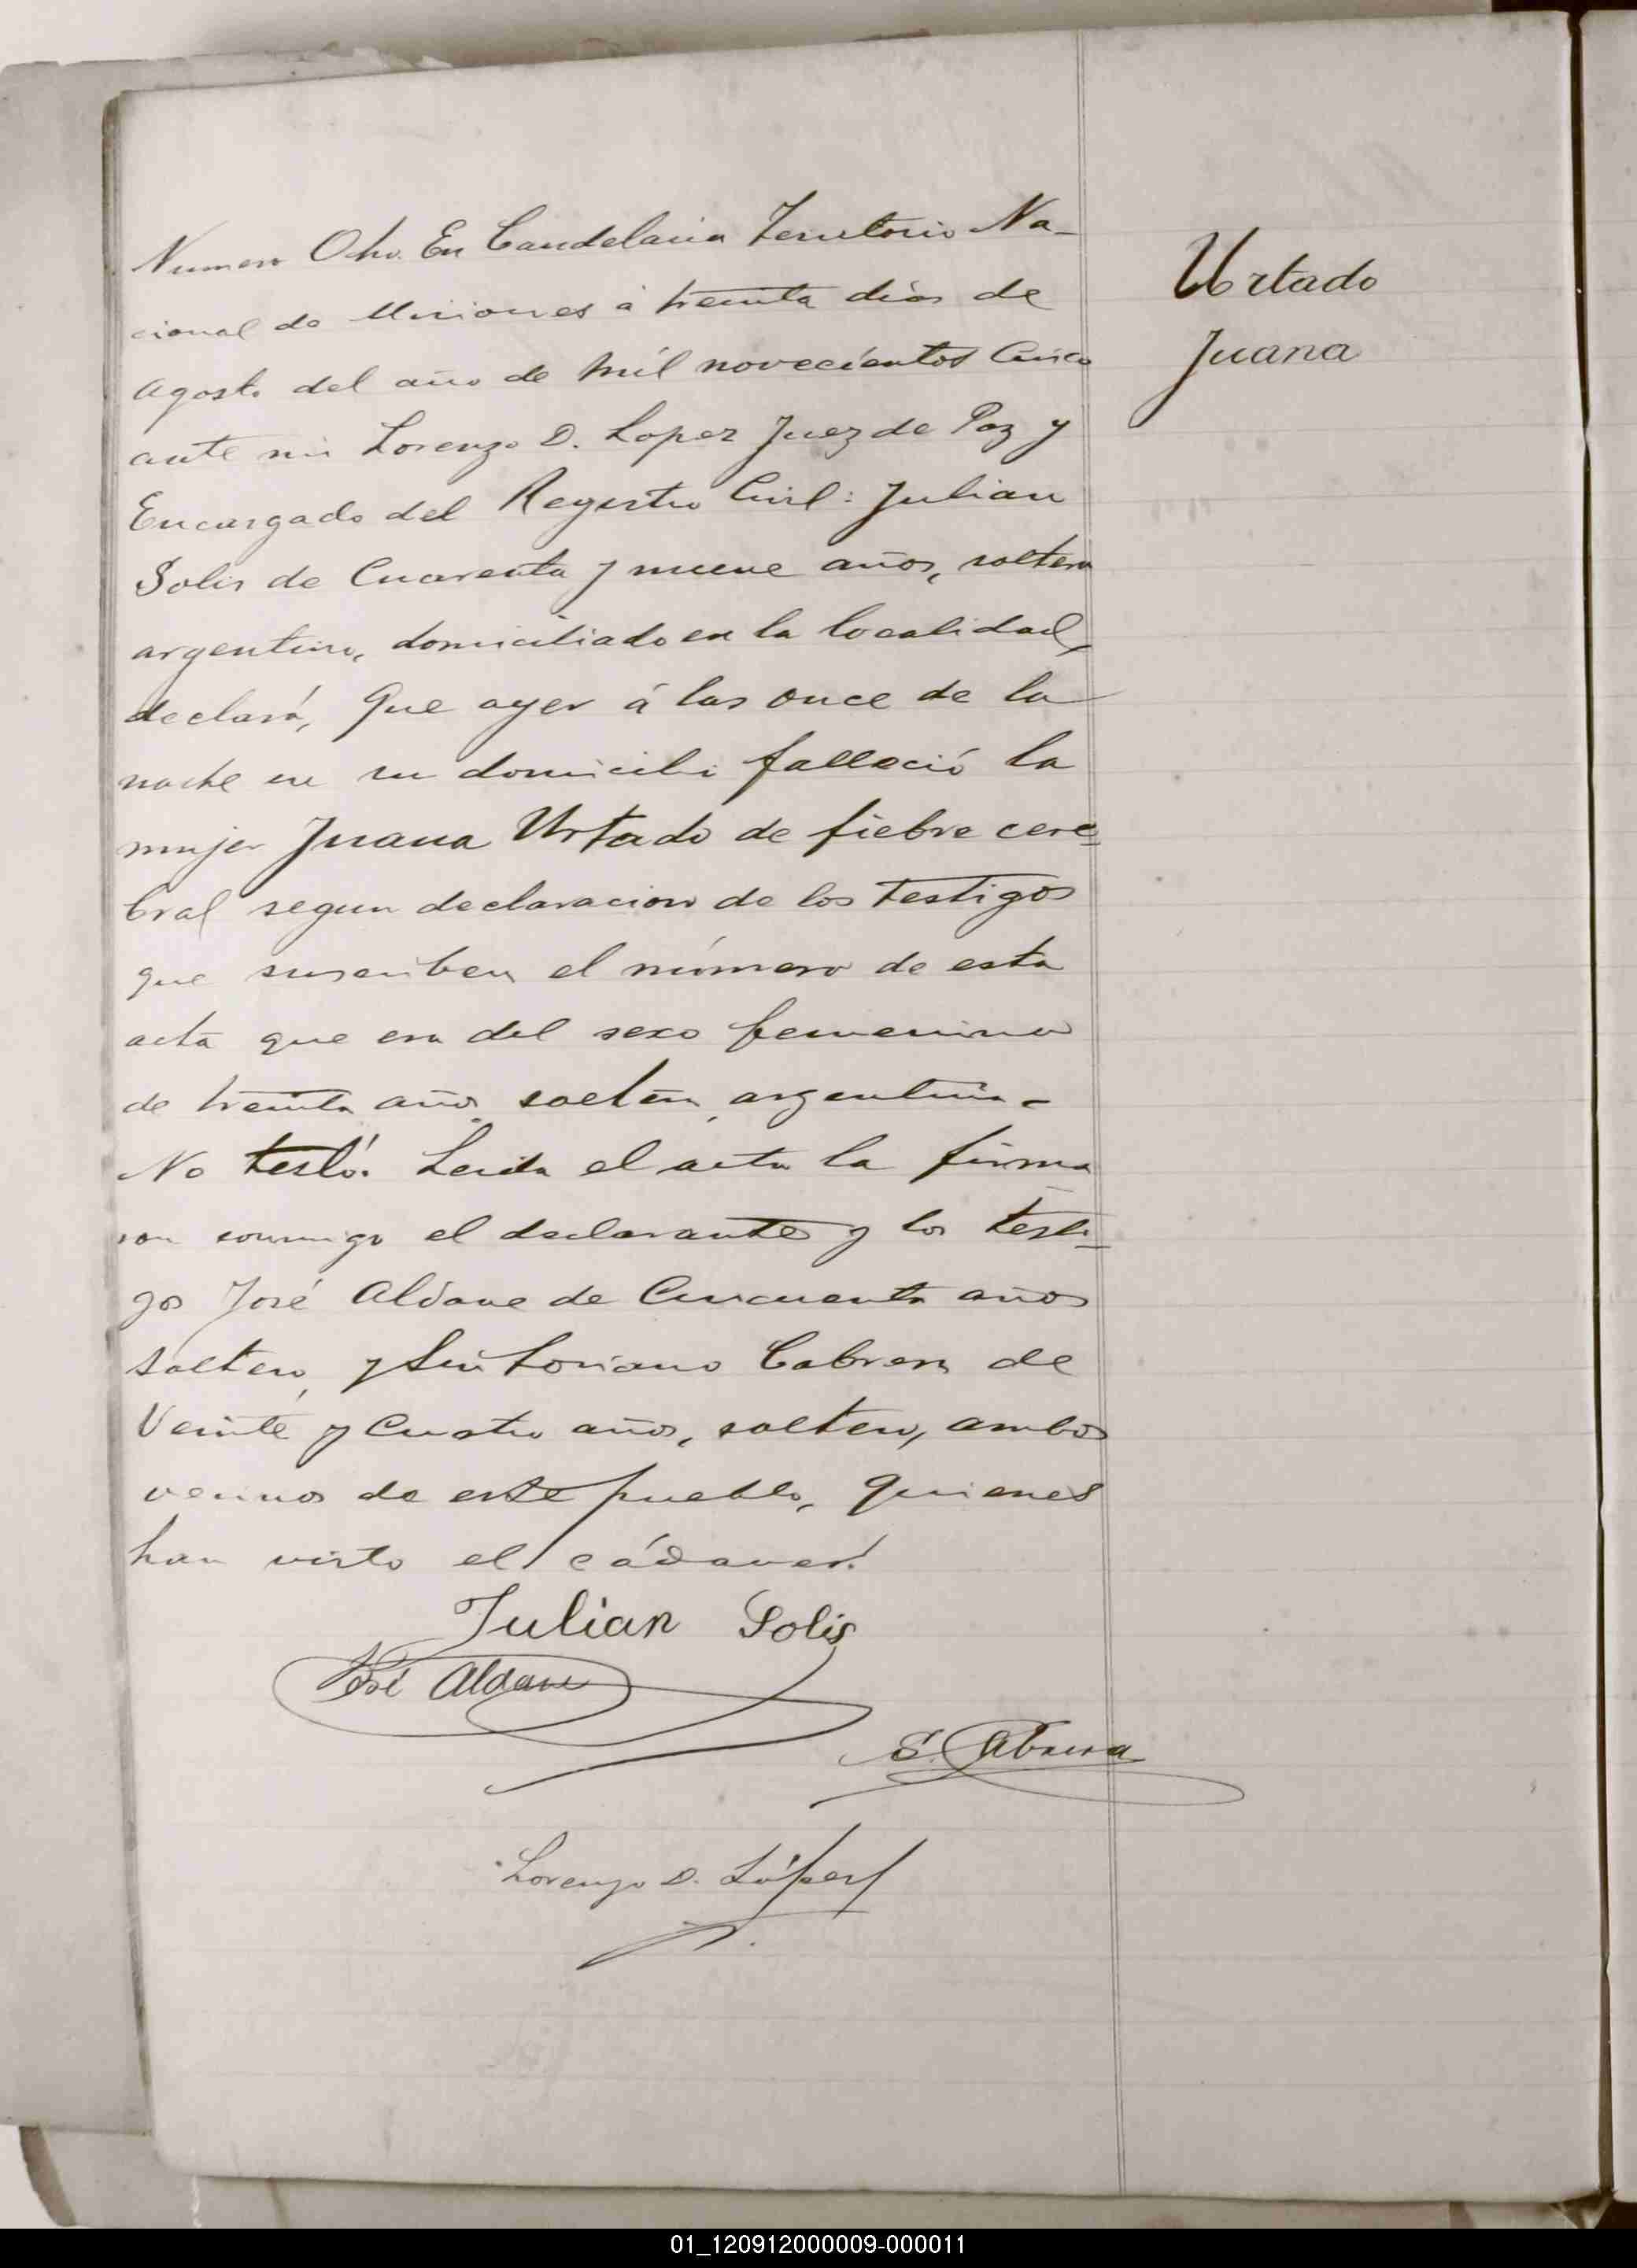 Numero Ocho. En Candelaria Territorio Na-
cional de Misiones á treinta dias de
Agosto del año de mil novecientos Cinco
ante mi Lorenzo D. Lopez Juez de Paz y
Encargado del Registro Civil: Julian
Solis de Cuarenta y nueve años, soltero
argentino, domiciliado en la localidad,
declaró, Que ayer á las once de la
noche en su domicilio falleció la
mujer Juana Urtado de fiebre cere-
bral segun declaracion de los testigos
que suscriben el número de esta
acta que era del sexo femenino
de treinta años, soltera, argentina-
No testó. Leida el acta la firma
ron conmigo el declarante y los testi-
gos José Aldave de Cincuenta años
soltero, y Sintoriano Cabrera de
Veinte y Cuatro años, soltero, ambos
vecinos de este pueblo, quienes
han visto el cádaver.
Julian Solis
José Aldave
S. Cabrera
Lorenzo D. López
Urtado
Juana
01_120912000009-000011